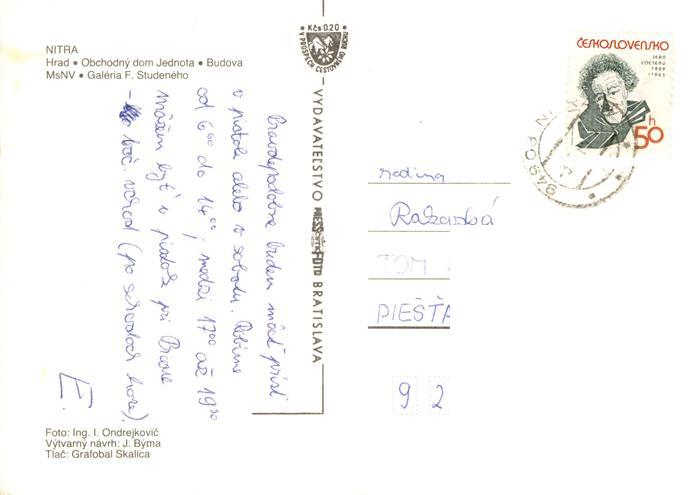 NITRA
Hrad • Obchodný dom Jednota • Budova
MsNV • Galéria F. Studeného
Kčs 0.20
V PROSPECH CESTOVNÉHO RUCHU
ČESKOSLOVENSKO
JEAN
COCTEAU
1889
1963
50 h
949 01
VYDAVATEĽSTVO PRESSFOTO BRATISLAVA
Pravdepodobne budem môcť prísť
v piatok alebo v sobotu. Robíme
od 6⁰⁰ do 14⁰⁰, medzi 17⁰⁰ až 19³⁰
môžem byť v piatok pri Prave
boč. vchod (po schodoch hore).
E.
rodina
TOM
PIEŠŤA
9 2
Foto: Ing. I. Ondrejkovič
Výtvarný návrh: J. Býma
Tlač: Grafobal Skalica